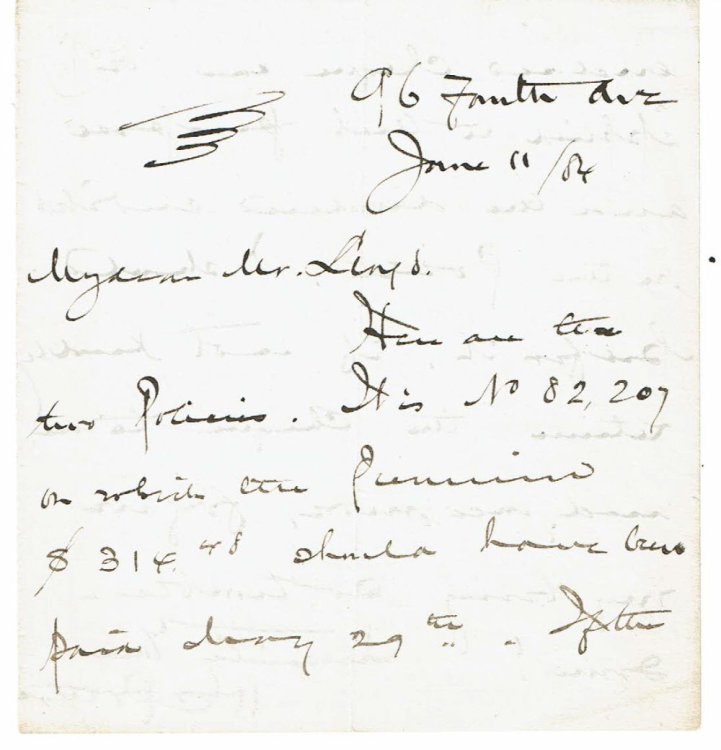 96 Fourth Ave
June 11/84
My dear Mr. Lloyd.
Here are the
two Policies. It is No 82,207
on which the Premium
$ 314.48 should have been
paid May 29th. If the